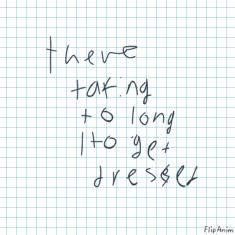 there
taking
to long
to get
dresset
FlipAnim